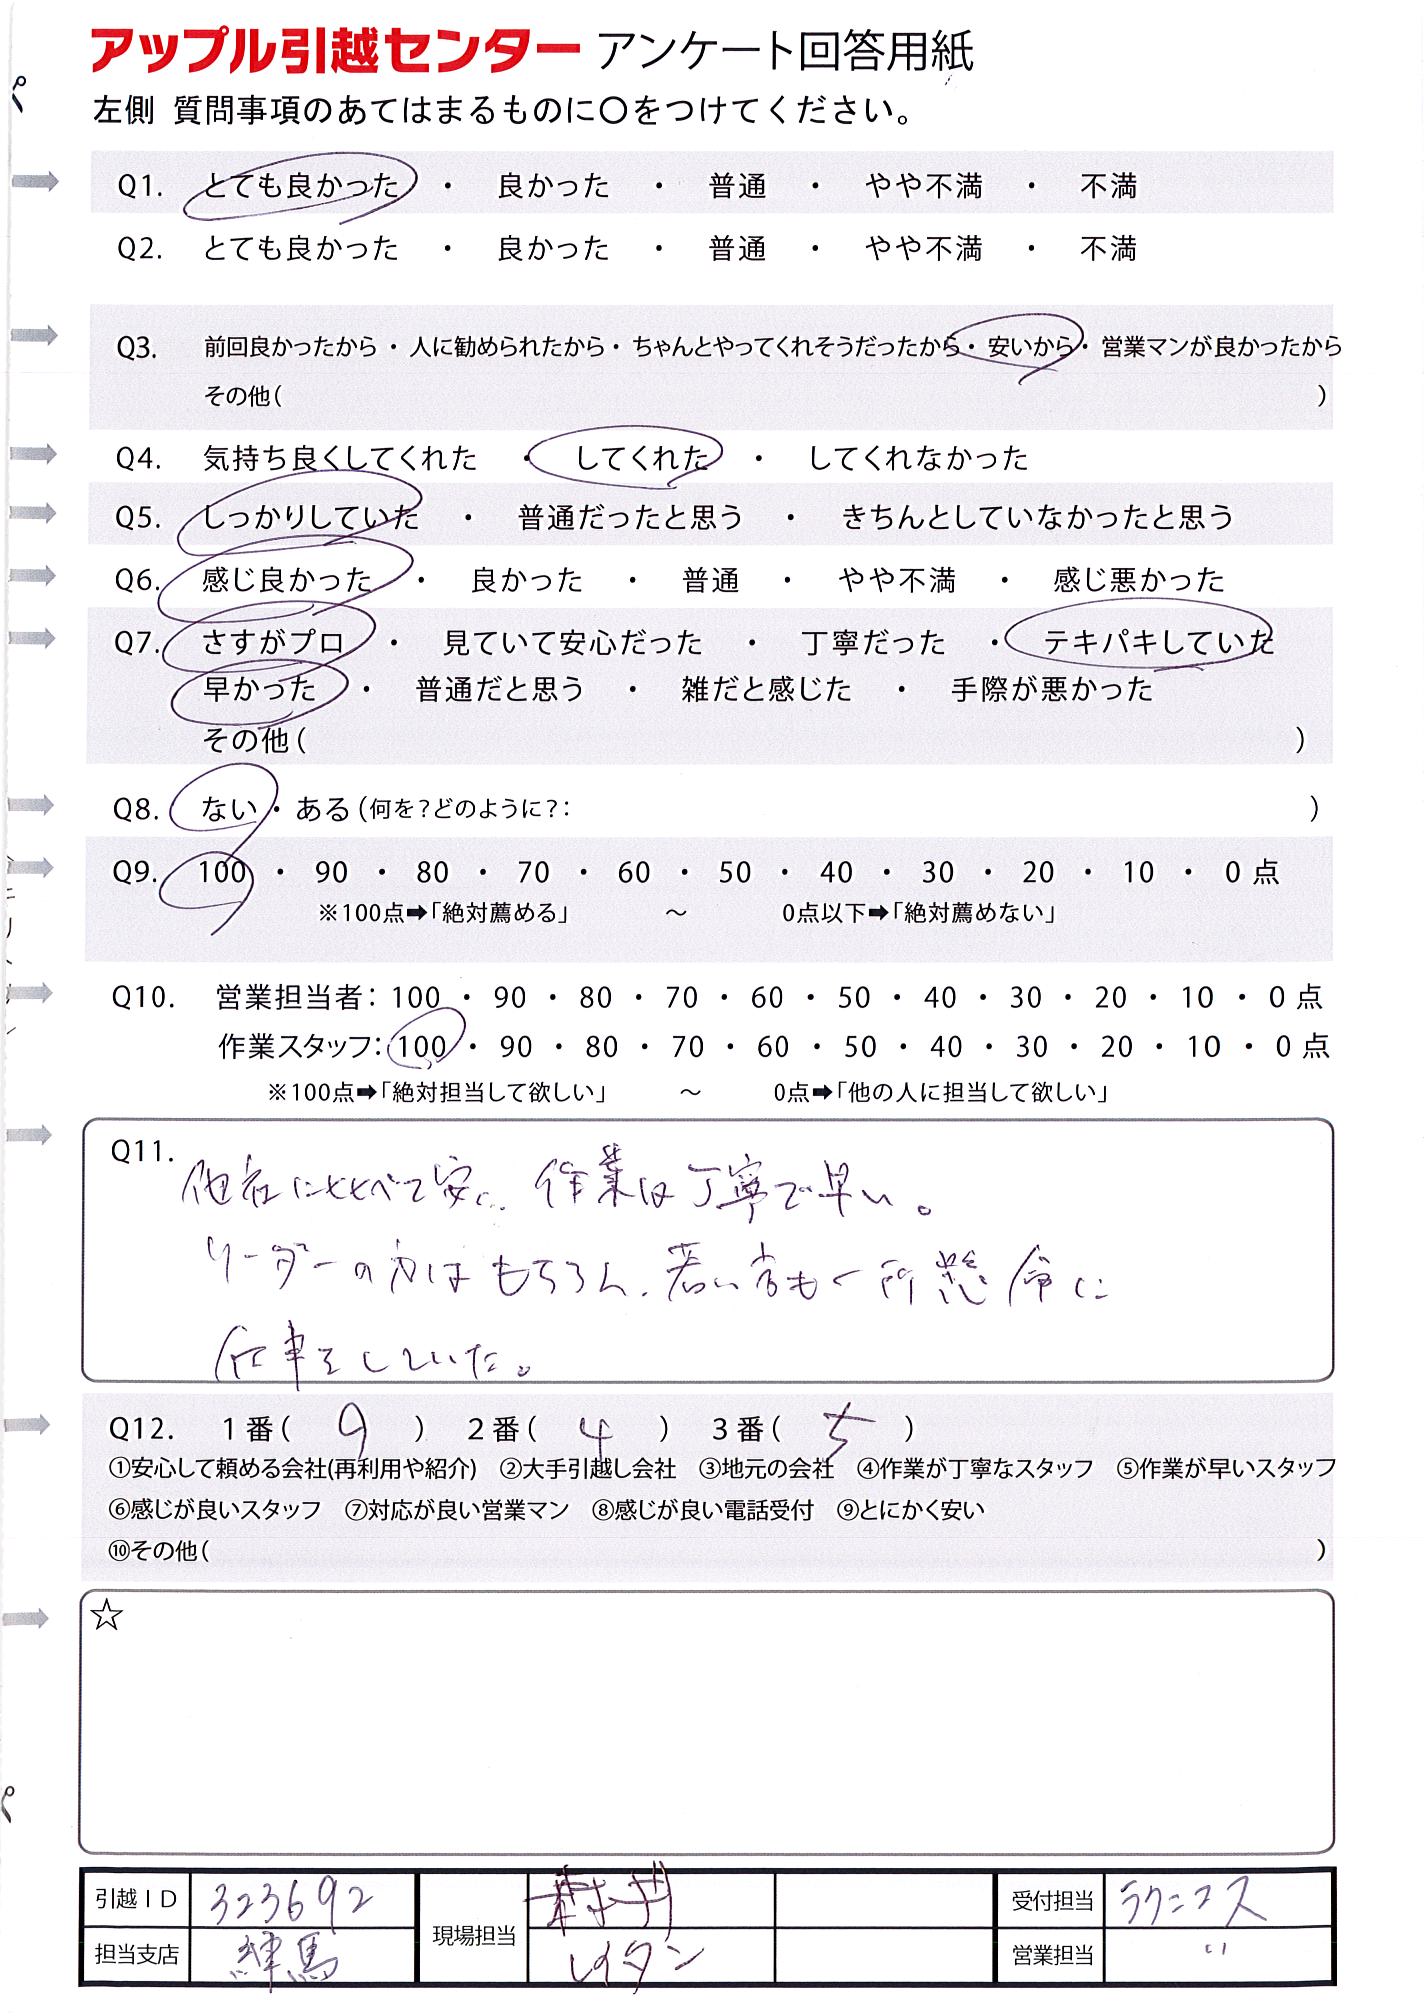 アップル引越センター アンケート回答用紙
左側 質問事項のあてはまるものに〇をつけてください。
Q1. とても良かった ・ 良かった ・ 普通 ・ やや不満 ・ 不満
Q2. とても良かった ・ 良かった ・ 普通 ・ やや不満 ・ 不満
Q3. 前回良かったから・人に勧められたから・ちゃんとやってくれそうだったから・安いから・営業マンが良かったから
その他( )
Q4. 気持ち良くしてくれた ・ してくれた ・ してくれなかった
Q5. しっかりしていた ・ 普通だったと思う ・ きちんとしていなかったと思う
Q6. 感じ良かった ・ 良かった ・ 普通 ・ やや不満 ・ 感じ悪かった
Q7. さすがプロ ・ 見ていて安心だった ・ 丁寧だった ・ テキパキしていた
早かった ・ 普通だと思う ・ 雑だと感じた ・ 手際が悪かった
その他( )
Q8. ない・ある(何を?どのように?: )
Q9. 100 ・ 90 ・ 80 ・ 70 ・ 60 ・ 50 ・ 40 ・ 30 ・ 20 ・ 10 ・ 0点
※100点➡「絶対薦める」 ～ 0点以下➡「絶対薦めない」
Q10. 営業担当者: 100 ・ 90 ・ 80 ・ 70 ・ 60 ・ 50 ・ 40 ・ 30 ・ 20 ・ 10 ・ 0点
作業スタッフ: 100 ・ 90 ・ 80 ・ 70 ・ 60 ・ 50 ・ 40 ・ 30 ・ 20 ・ 10 ・ 0点
※100点➡「絶対担当して欲しい」 ～ 0点➡「他の人に担当して欲しい」
Q11. 他社にくらべて安い、作業は丁寧で早い。
リーダーの方はもちろん、若い方も一所懸命に
仕事をしていた。
Q12. 1番( 9 ) 2番( 4 ) 3番( 5 )
①安心して頼める会社(再利用や紹介) ②大手引越し会社 ③地元の会社 ④作業が丁寧なスタッフ ⑤作業が早いスタッフ
⑥感じが良いスタッフ ⑦対応が良い営業マン ⑧感じが良い電話受付 ⑨とにかく安い
⑩その他( )
☆
引越ID 323692 現場担当 受付担当 ラクニコス
担当支店 練馬 レイタン 営業担当 〃